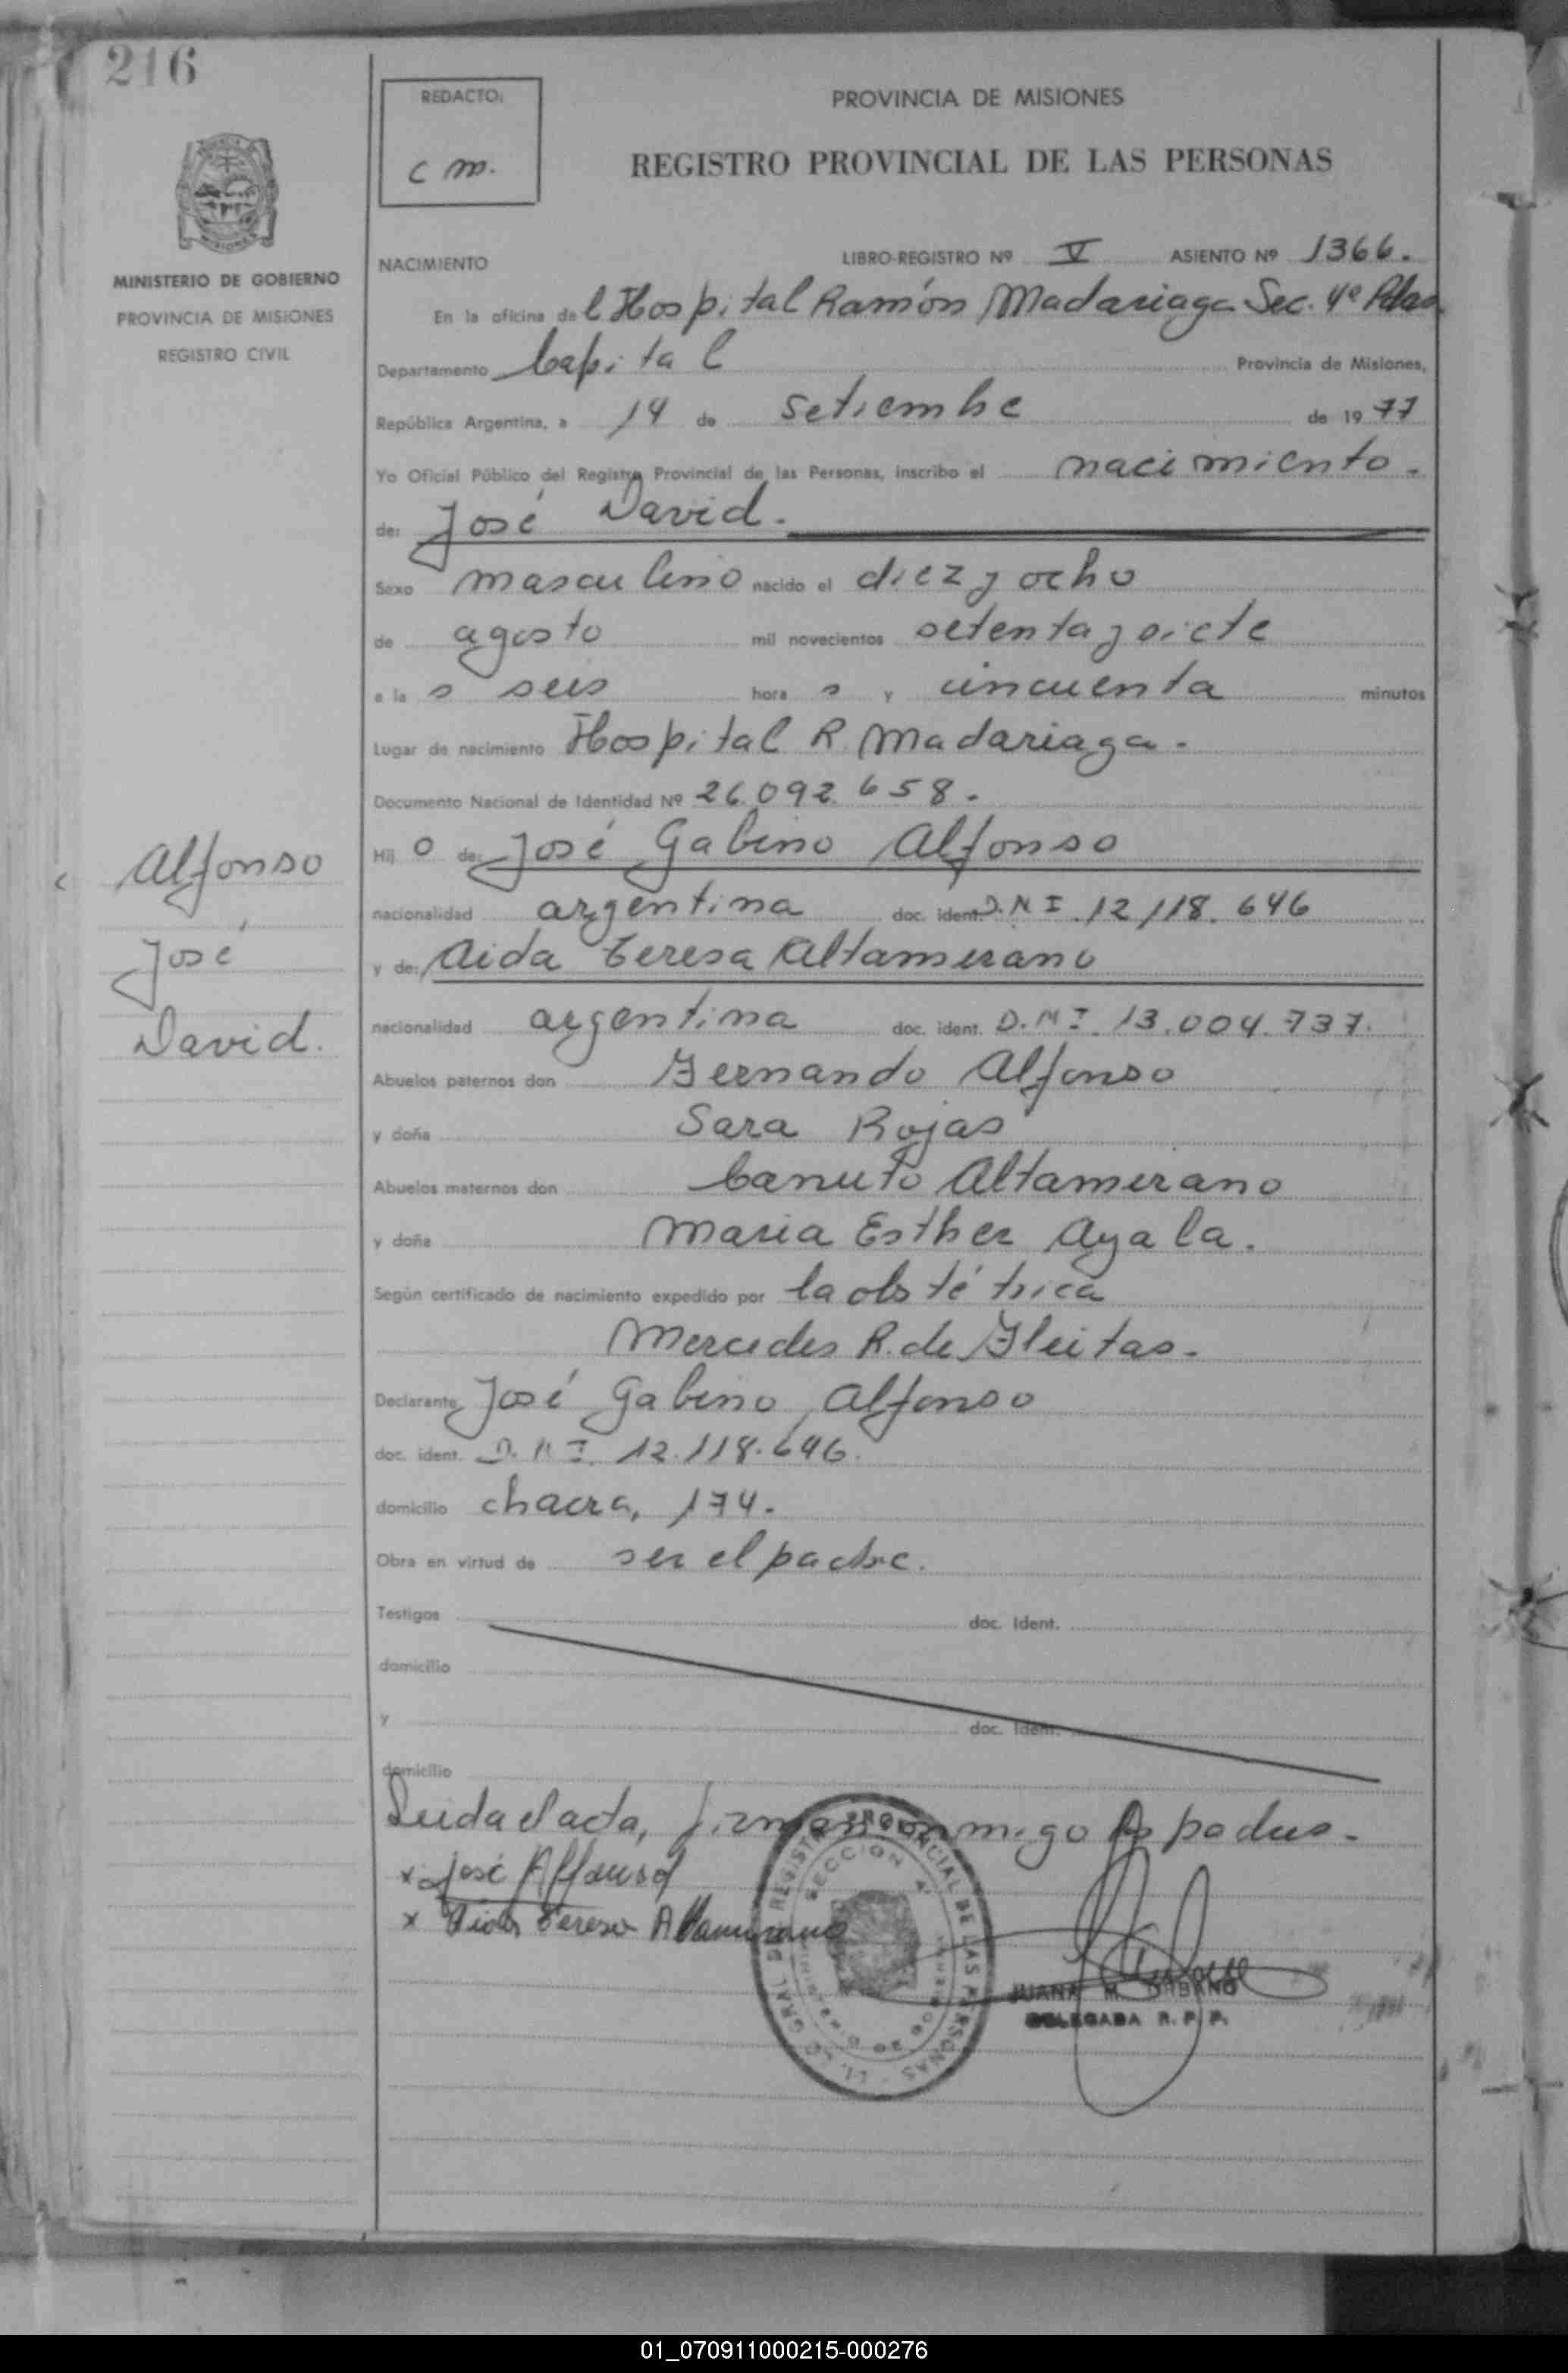 216
REDACTO:
c m.
PROVINCIA DE MISIONES
REGISTRO PROVINCIAL DE LAS PERSONAS
MINISTERIO DE GOBIERNO
PROVINCIA DE MISIONES
REGISTRO CIVIL
NACIMIENTO LIBRO-REGISTRO Nº V ASIENTO Nº 1366.
En la oficina del Hospital Ramón Madariaga Sec. 4ª Pdas
Departamento Capital Provincia de Misiones,
República Argentina, a 14 de Setiembre de 1977
Yo Oficial Público del Registro Provincial de las Personas, inscribo el nacimiento.
de: José David.
Sexo masculino nacido el diez y ocho
de agosto mil novecientos setenta y siete
a la s seis hora s y cincuenta minutos
Lugar de nacimiento Hospital R. Madariaga.
Documento Nacional de Identidad Nº 26.092.658.
Hij o de: José Gabino Alfonso
nacionalidad argentina doc. ident. D.N.I. 12.118.646
y de: Aida Teresa Altamirano
nacionalidad argentina doc. ident. D.N.I. 13.004.737.
Abuelos paternos don Fernando Alfonso
y doña Sara Rojas
Abuelos maternos don Canuto Altamirano
y doña Maria Esther Ayala.
Según certificado de nacimiento expedido por la obstétrica
Mercedes R. de Fleitas.
Declarante José Gabino Alfonso
doc. ident. D.N.I. 12.118.646.
domicilio chacra, 174.
Obra en virtud de ser el padre.
Testigos doc. Ident.
domicilio
y doc. Ident.
domicilio
Leida el acta, firman conmigo los padres.
x José Alfonso
x Aida Teresa Altamirano
REGISTRO PROVINCIAL DE LAS PERSONAS
SECCION 4ª
JUANA M. URBANO
DELEGADA R. P. P.
Alfonso
José
David.
01_070911000215-000276